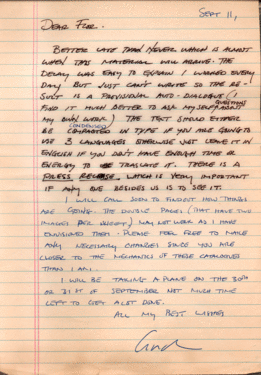 SEPT 11,
DEAR FLOR.
BETTER LATE THAN NEVER WHICH IS ALMOST
WHEN THIS MATERIAL WILL ARRIVE. THE
DELAY WAS EASY TO EXPLAIN I WORKED EVERY
DAY BUT JUST CAN'T WRITE SO THE RE-
SULT IS A PROVISIONAL AUTO-DIALOGUE (I
FIND IT MUCH BETTER TO ASK MYSELF QUESTIONS ABOUT
MY OWN WORK) THE TEXT SHOULD EITHER
BE CONDENSED COMPACTED IN TYPE IF YOU ARE GOING TO
USE 3 LANGUAGES OTHERWISE JUST LEAVE IT IN
ENGLISH IF YOU DON'T HAVE ENOUGH TIME OR
ENERGY TO TRANSLATE IT. THERE IS A
PRESS RELEASE, WHICH IS VERY IMPORTANT
IF ANY ONE BESIDES US IS TO SEE IT.
I WILL CALL SOON TO FIND OUT HOW THINGS
ARE GOING. THE DOUBLE PAGES (THAT HAVE TWO
IMAGES PER) MAY NOT WORK AS I HAVE
ENVISIONED THEM. PLEASE FEEL FREE TO MAKE
ANY NECESSARY CHANGES SINCE YOU ARE
CLOSER TO THE MECHANICS OF THESE CATALOGUES
THAN I AM.
I WILL BE TAKING A PLANE ON THE 30TH
OR 31ST OF SEPTEMBER NOT MUCH TIME
LEFT TO GET A LOT DONE.
ALL MY BEST WISHES